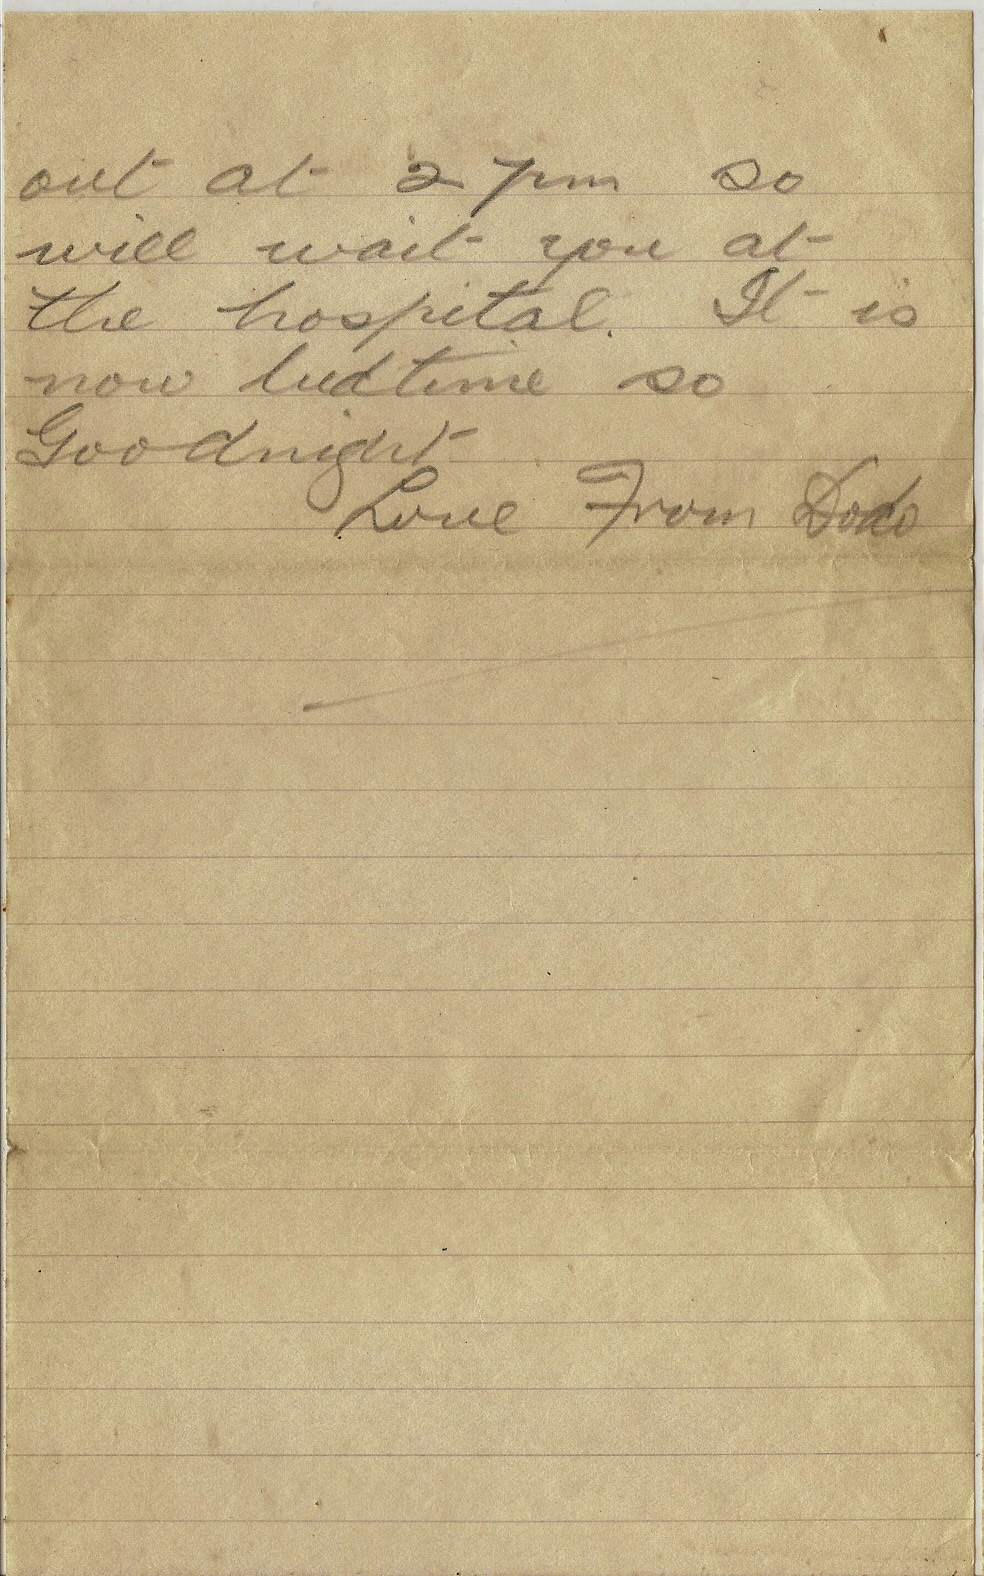 out at 2 pm so
will wait you at
the hospital. It is
now bedtime so
Goodnight
Love From Dodo